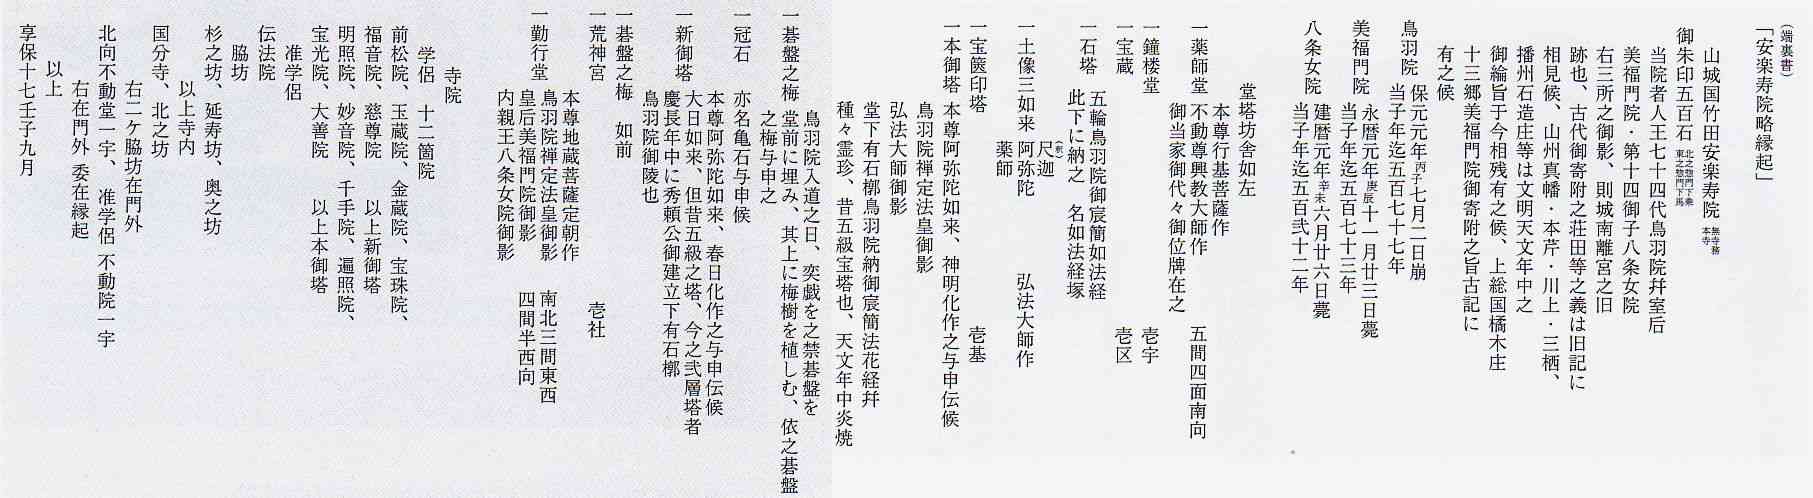 (端裏書)
「安楽寿院略縁起」
山城国竹田安楽寿院 無寺務 本寺
御朱印五百石 北之惣門下乗 東之惣門下馬
当院者人王七十四代鳥羽院幷室后
美福門院・第十四御子八条女院
右三所之御影、則城南離宮之旧
跡也、古代御寄附之荘田等之義は旧記に
相見候、山州真幡・本芹・川上・三栖、
播州石造庄等は文明天文年中之
御綸旨于今相残有之候、上総国橘木庄
十三郷美福門院御寄附之旨古記に
有之候
鳥羽院 保元元年丙子七月二日崩
当子年迄五百七十七年
美福門院 永暦元年庚辰十一月廿三日薨
当子年迄五百七十三年
八条女院 建暦元年辛未六月廿六日薨
当子年迄五百弐十二年
堂塔坊舎如左
一薬師堂 本尊行基菩薩作
不動尊興教大師作 五間四面南向
御当家御代々御位牌在之
一鐘楼堂 壱宇
一宝蔵 壱区
一石塔 五輪鳥羽院御宸簡如法経
此下に納之 名如法経塚
一土像三如来 尺(釈)迦 阿弥陀 薬師 弘法大師作
一宝篋印塔 壱基
一本御塔 本尊阿弥陀如来、神明化作之与申伝候
鳥羽院禅定法皇御影
弘法大師御影
堂下有石槨鳥羽院納御宸簡法花経幷
種々霊珍、昔五級宝塔也、天文年中炎焼
一碁盤之梅 鳥羽院入道之日、奕戯を之禁碁盤を
堂前に埋み、其上に梅樹を植しむ、依之碁盤
之梅与申之
一冠石 亦名亀石与申候
一新御塔 本尊阿弥陀如来、春日化作之与申伝候
大日如来、但昔五級之塔、今之弐層塔者
慶長年中に秀頼公御建立下有石槨
鳥羽院御陵也
一碁盤之梅 如前
一荒神宮 壱社
一勤行堂 本尊地蔵菩薩定朝作
鳥羽院禅定法皇御影 南北三間東西
皇后美福門院御影 四間半西向
内親王八条女院御影
寺院
学侶 十二箇院
前松院、玉蔵院、金蔵院、宝珠院、
福音院、慈尊院 以上新御塔
明照院、妙音院、千手院、遍照院、
宝光院、大善院 以上本御塔
准学侶
伝法院
脇坊
杉之坊、延寿坊、奥之坊
以上寺内
国分寺、北之坊
右二ケ脇坊在門外
北向不動堂一宇、准学侶 不動院一宇
右在門外 委在縁起
以上
享保十七壬子九月